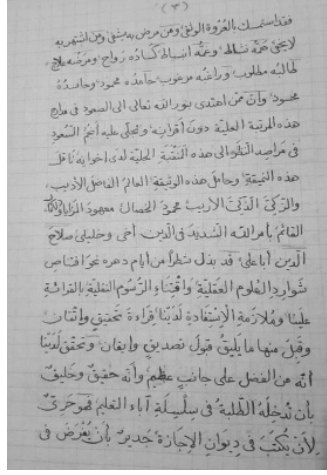 (٣)
فقد استمسك بالعروة الوثقى ومن مرض به يشفى ومن اشتهر به
لا يخفى
لطالبه مطلوب وراغبه مرغوب حامده محمود وحاسده
محسود وان ممن اهتدى بنور الله تعالى الى الصعود في مدارج
هذه المرتبة العلية دون أقرانه وتجلى عليه أنجم السعود
في مراصد النظر الى هذه المنقبة الجلية لدى اخوانه ناقل
هذه النميقة وحامل هذه الوثيقة العالم الفاضل الأديب
والزكي الذكي الأريب محمود الخصال معهود المزايا
القائم بأمر الله الشديد في الدين أخي وخليلي صلاح
الدين قد بذل شطرا من أيام دهره نحو اقتناص
شوارد العلوم العقلية واقتناء الرسوم النقلية بالقرائة
علينا وملازمة الاستفادة لدينا قراءة تحقيق وإتقان
وقبل منها ما يليق قبول تصديق وإيقان وتحقق لدينا
أنه من الفضل على جانب عظيم وأنه حقيق وخليق
بأن تدخله الطلبة في سلسلة آباء التعليم فهو حري
لأن يكتب في ديوان الإجازة جدير بأن يفرض في